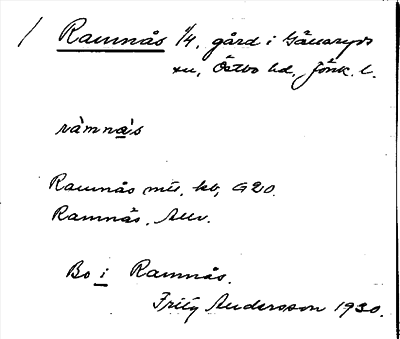 Ramnås 1/4, gård i Gällaryds
sn, Östbo hd, Jönk. l.
ràmnǻs
Ramnås mtl, kb, G20.
Ramnås,
Bo i Ramnås.
Fritz Andersson 1930.